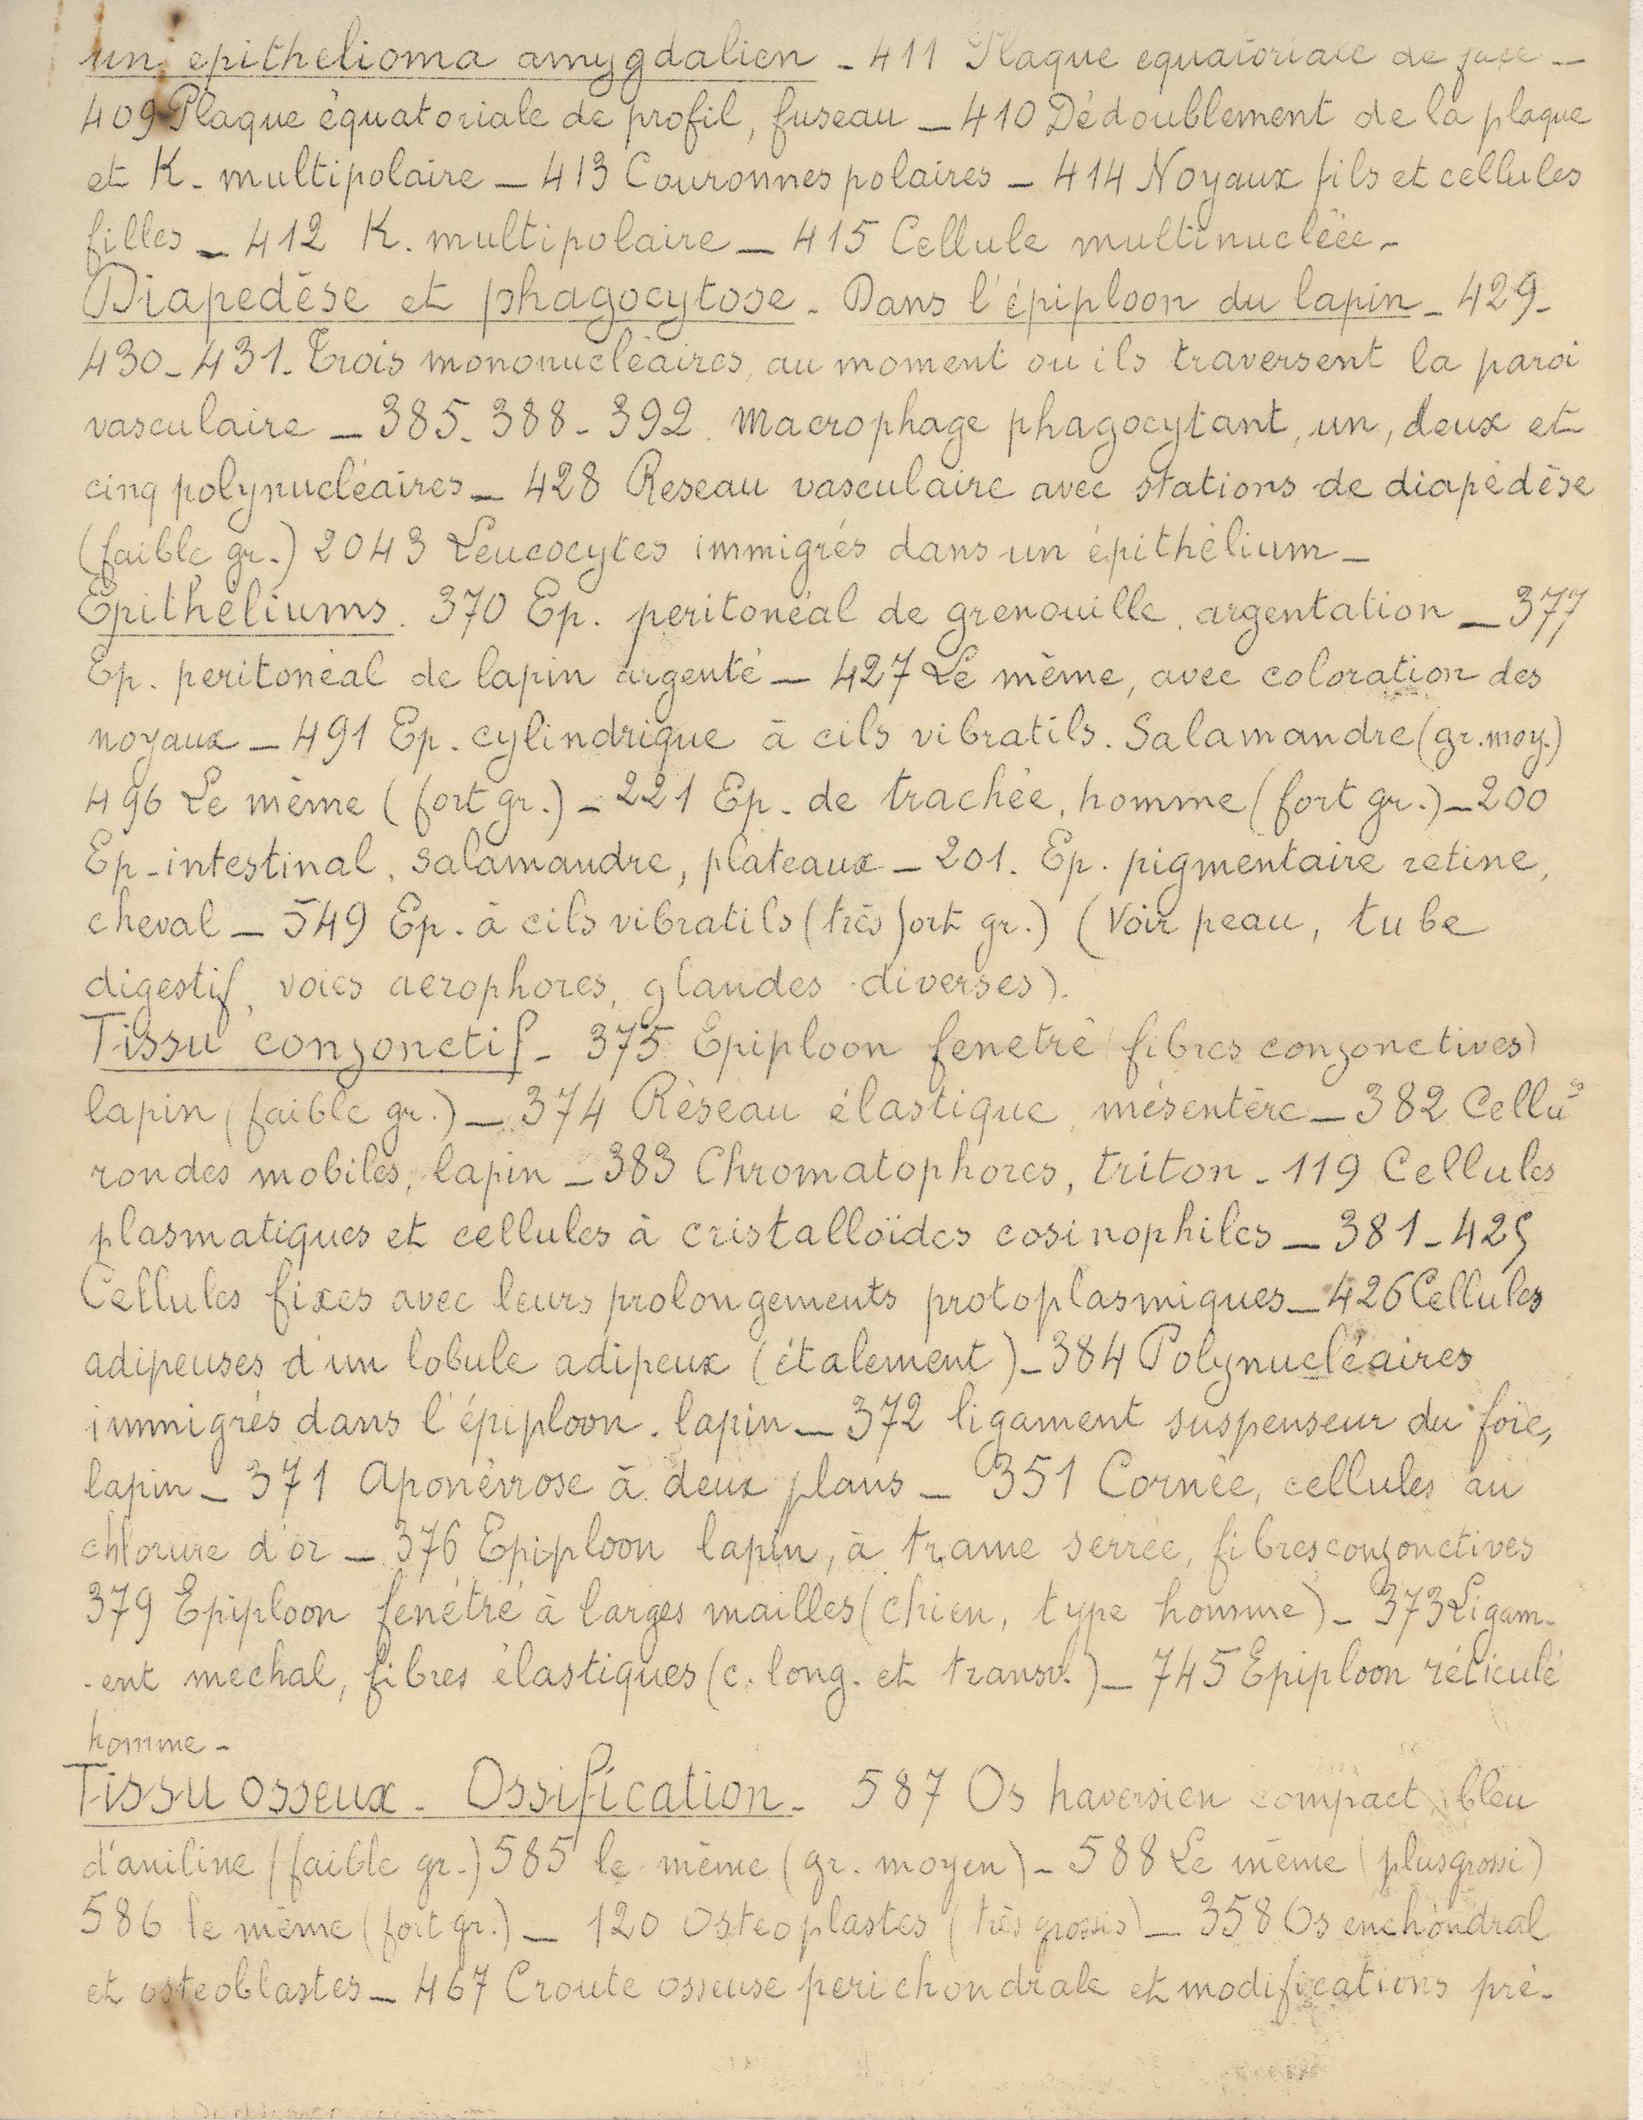 un epithelioma amygdalien - 411 Plaque equatoriale de face -
409 Plaque équatoriale de profil, fuseau - 410 Dédoublement de la plaque
et K. multipolaire - 413 Couronnes polaires - 414 Noyaux fils et cellules
filles - 412 K. multipolaire - 415 Cellule multinuclëée -
Diapedèse et phagocytose - Dans l'épiploon du lapin - 429-
430-431. Trois mononucléaires, au moment ou ils traversent la paroi
vasculaire - 385-388-392. Macrophage phagocytant, un, deux et
cinq polynucléaires - 428 Reseau vasculaire avec stations de diapédèse
(faible gr.) 2043 Leucocytes immigrés dans un épithélium -
Epithéliums. 370 Ep. peritonéal de grenouille, argentation - 377
Ep. peritonéal de lapin argenté - 427 Le même, avec coloration des
noyaux - 491 Ep. cylindrique à cils vibratils. Salamandre (gr. moy.)
496 Le même (fort gr.) - 221 Ep. de trachée, homme (fort gr.) - 200
Ep. intestinal, salamandre, plateaux - 201. Ep. pigmentaire retine,
cheval - 549 Ep. à cils vibratils (très fort gr.) (Voir peau, tube
digestif, voies aerophores, glandes diverses).
Tissu conjonctif - 375 Epiploon fenetré (fibres conjonctives)
lapin (faible gr.) - 374 Réseau élastique, mésentère - 382 Cellu^s
rondes mobiles, lapin - 383 Chromatophores, triton - 119 Cellules
plasmatiques et cellules à cristalloïdes eosinophiles - 381-425
Cellules fixes avec leurs prolongements protoplasmiques - 426 Cellules
adipeuses d'un lobule adipeux (étalement) - 384 Polynucléaires
immigrés dans l'épiploon. lapin - 372 ligament suspenseur du foie,
lapin - 371 Aponévrose à deux plans - 351 Cornée, cellules au
chlorure d'or - 376 Epiploon lapin, à trame serrée, fibres conjonctives
379 Epiploon fenétré à larges mailles (chien, type homme) - 373 Ligam-
-ent mechal, fibres élastiques (c. long. et transv.) - 745 Epiploon réticulé
homme -
Tissu osseux - Ossification - 587 Os haversien compact, bleu
d'aniline (faible gr.) 585 le même (gr. moyen) - 588 Le même (plus grossi)
586 le même (fort gr.) - 120 Osteoplastes (très grossis) - 358 Os enchondral
et osteoblastes - 467 Croute osseuse perichondrale et modifications pré-